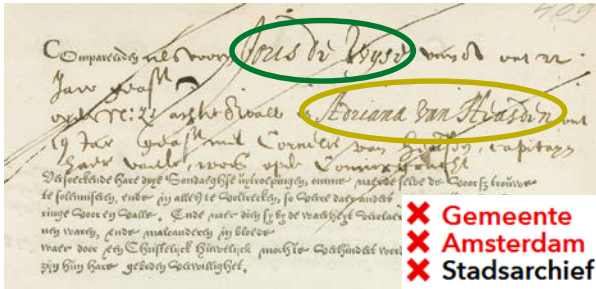 409
Compareerden als vooren Joris de Wyse van oudt 22
Jare geass
op de N: Z: achter Wall en Adriana van Heusden out
19 Jar geast met Cornelis van Heusden, Capiteyn
haer vader, woon. op de Coninxgracht
Versoeckende hare drye Sondaeghse uytroepingen, omme naer de selve de Voorsz. trouwe
te solemniseren, ende in alles te Voltrecken, so Verre daer anders
ringe Voor en Valle. Ende naer dien sy by de waerheyt Verclaer
nen waren, ende malcanderen in bloede
waer door een Christelijck Huwelijck mochte Verhindert werd
zijn hun hare geboden Verwillighet.
Gemeente
Amsterdam
Stadsarchief